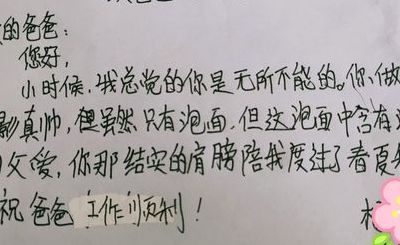 的爸爸:
您好,
小时候,我总觉的你是无所不能的。你做
影真帅,但虽然只有泡面,但这泡面中含有
父爱,你那结实的肩膀陪我度过了春夏
祝爸爸工作顺利!